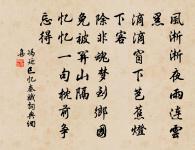 風淅淅夜雨連雲
黑
滴滴窗下芭蕉燈
下客
除非魂夢到鄉國
免被關山隔
憶憶一句枕前爭
忘得
馮延巳憶秦娥詞典網